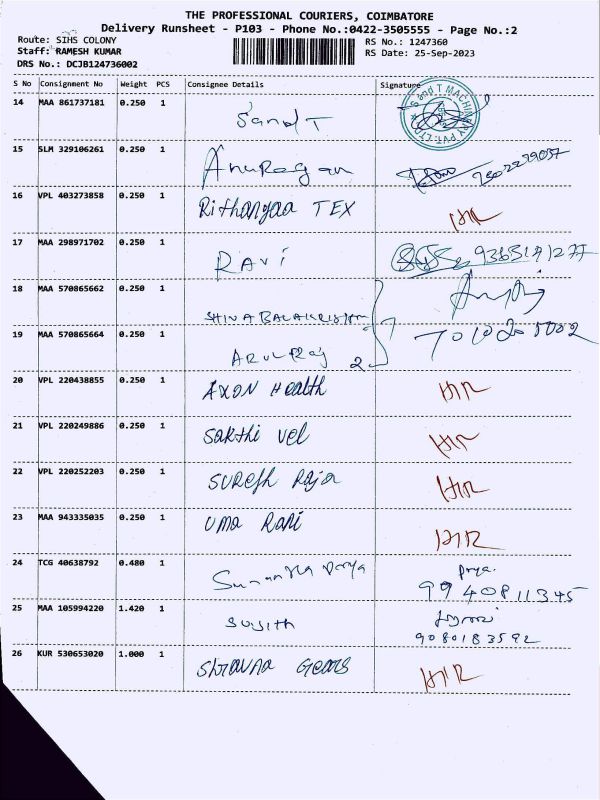 THE PROFESSIONAL COURIERS, COIMBATORE
Delivery Runsheet - P103 - Phone No.:0422-3505555 - Page No.:2
Route: SIHS COLONY RS No.: 1247360
Staff: RAMESH KUMAR RS Date: 25-Sep-2023
DRS No.: DCJB124736002
S No Consignment No Weight PCS Consignee Details Signature
14 MAA 861737181 0.250 1 Sand T S and T MACHINERY PVT. LTD
15 SLM 329106261 0.250 1 Anuragan
16 VPL 403273858 0.250 1 Rithangaa TEX HR
17 MAA 298971702 0.250 1 Ravi
18 MAA 570865662 0.250 1 SHIVABALAKRISHNN
19 MAA 570865664 0.250 1 ARULRAJ 2
20 VPL 220438855 0.250 1 AXON Health HR
21 VPL 220249886 0.250 1 Sakthi vel HR
22 VPL 220252203 0.250 1 SUREsh Raja HR
23 MAA 943335035 0.250 1 UMA RANi HR
24 TCG 40638792 0.480 1 Priya 9940811345
25 MAA 105994220 1.420 1 SUJITH 9080183592
26 KUR 530653020 1.000 1 Shravna Gears HR